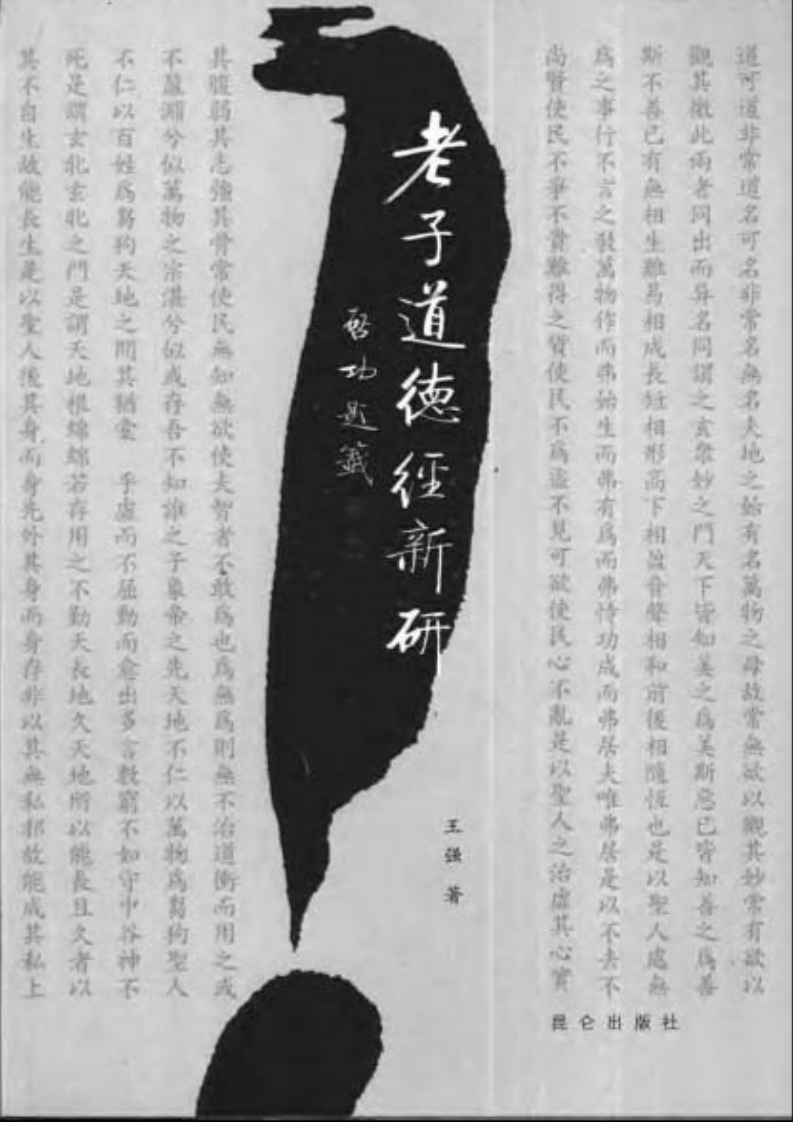 道可道非常道名可名非常名無名天地之始有名萬物之母故常無欲以觀其妙常有欲以
觀其徼此兩者同出而异名同謂之玄衆妙之門天下皆知美之爲美斯惡已皆知善之爲善
斯不善已有無相生難易相成長短相形高下相盈音聲相和前後相隨恆也是以聖人處無
爲之事行不言之教萬物作而弗始生而弗有爲而弗恃功成而弗居夫唯弗居是以不去不
尚賢使民不爭不貴難得之貨使民不爲盗不見可欲使民心不亂是以聖人之治虛其心實
老子道德經新研
啓功題籤
王强 著
昆仑出版社
其腹弱其志強其骨常使民無知無欲使夫智者不敢爲也爲無爲則無不治道衝而用之或
不盈淵兮似萬物之宗湛兮似或存吾不知誰之子象帝之先天地不仁以萬物爲芻狗聖人
不仁以百姓爲芻狗天地之間其猶橐 乎虛而不屈動而愈出多言數窮不如守中谷神不
死是謂玄牝玄牝之門是謂天地根綿綿若存用之不勤天長地久天地所以能長且久者以
其不自生故能長生是以聖人後其身而身先外其身而身存非以其無私邪故能成其私上